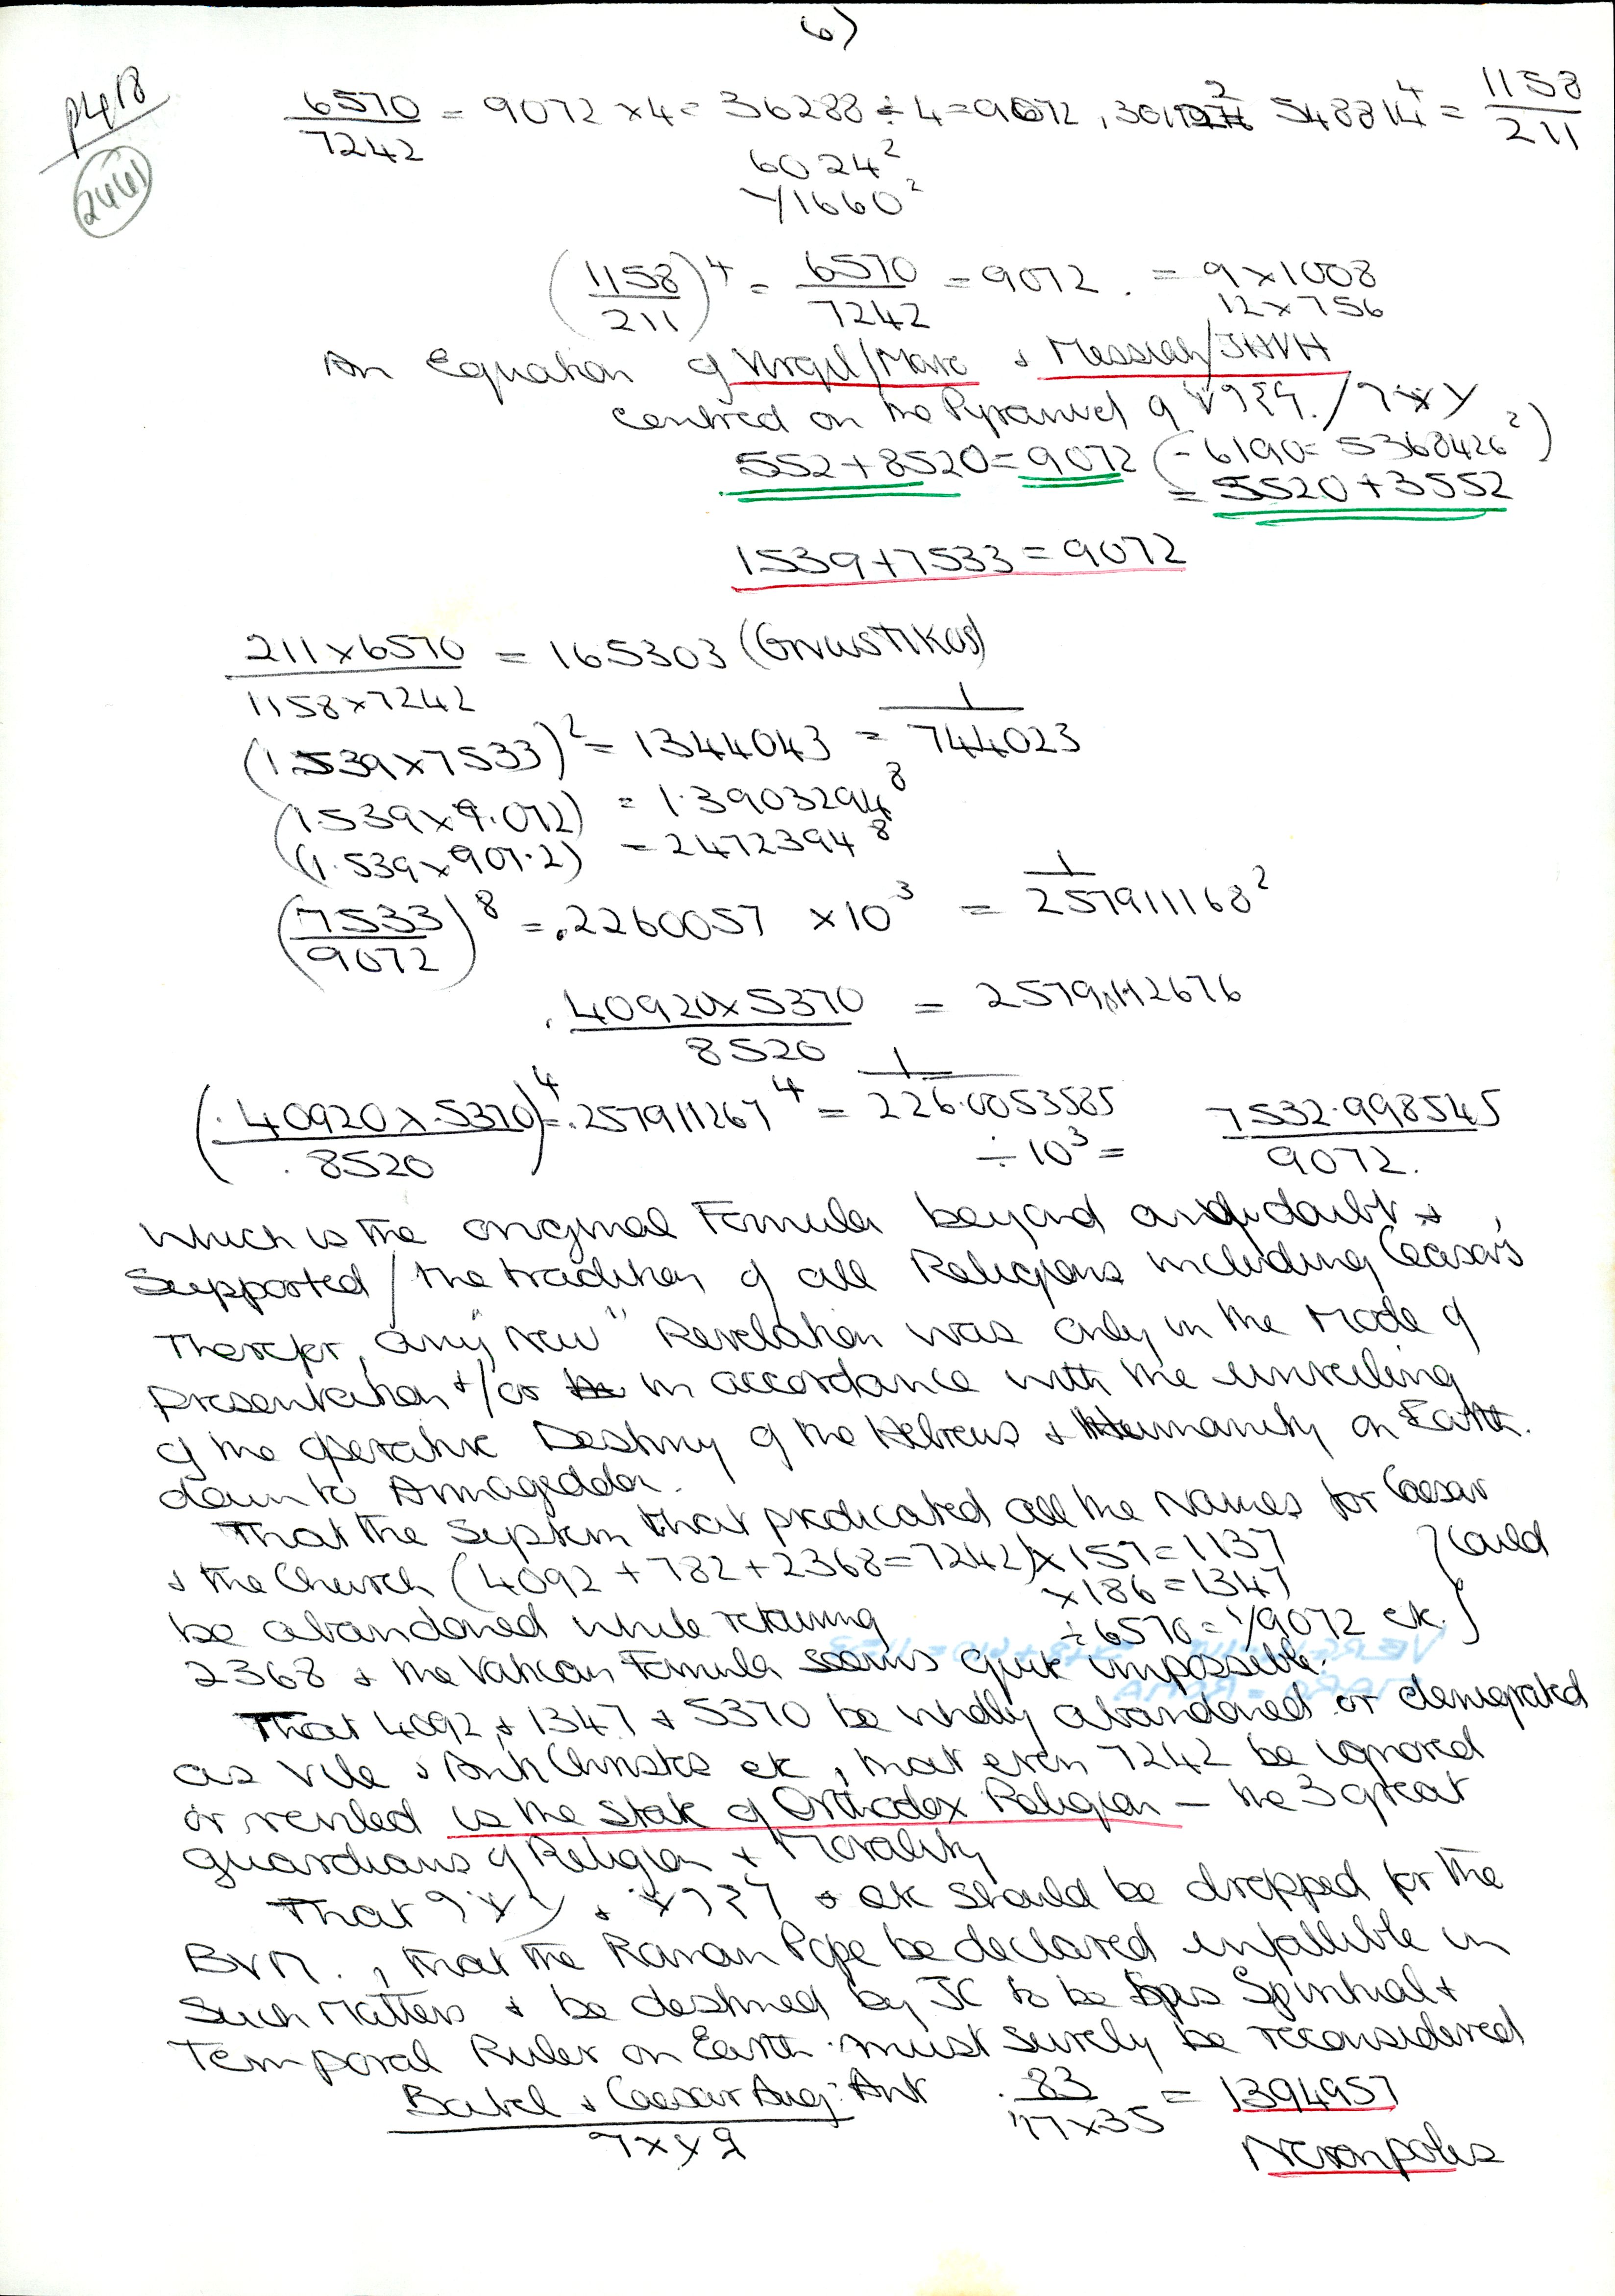 6)
P418
2461
6570/7242 = 9072 × 4 = 36288 ÷ 4 = 9072, 548814⁴ = 1158/211
6024²
1660²
(1158/211)⁴ = 6570/7242 = 9072. = 9 × 1008
12 × 756
An Equation of Virgil/Maro & Messiah/JHVH
centred on the Pyramid of
552 + 8520 = 9072 (- 6190 = 5368426²)
= 5520 + 3552
1539 + 7533 = 9072
211 × 6570 / 1158 × 7242 = 165303 (Gnostikos)
(1539 × 7533)² = 1344043 = 1/744023
(1.539 × 9.072) = 1.3903294⁸
(1.539 × 907.2) = 2472394⁸
(7533/9072)⁸ = .2260057 × 10³ = 1/257911168²
.40920 × 5370 / 8520 = 2579,112676
(.40920 × .5370 / .8520)⁴ = .257911267⁴ = 1/226.0053585 ÷ 10³ = 7532.998545/9072.
Which is the original Formula beyond any doubt &
Supported / the tradition of all Religions including Ceasar's
Therefor, any "New" Revelation was only in the Mode of
presentation &/or in accordance with the unveiling
of the operative Destiny of the Hebrews & Humanity on Earth.
down to Armageddon.
That the System that predicated all the Names for Caesar
& the Church (4092 + 782 + 2368 = 7242) × 157 = 1137 } Could
× 186 = 1347
be abandoned while retaining ÷ 6570 = 1/9072 etc.
2368 & the Vatican Formula seems quite impossible.
That 4092, & 1347 & 5370 be wholly abandoned or denigrated
as Vile & AntiChrists etc, that even 7242 be ignored
or reviled is the State of Orthodox Religion – the 3 great
guardians of Religion & Morality
That & etc should be dropped for the
BVM., that the Roman Pope be declared infallible in
Such Matters & be destined by JC to be his Spiritual &
Temporal Ruler on Earth must surely be reconsidered
Babel & Caesar Aug: Ant .83/77 × 35 = 1394957
Neronpolis